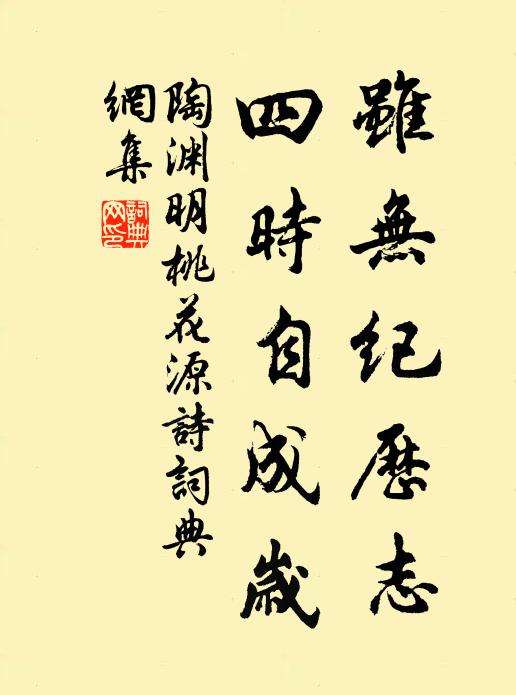 雖無纪歷志
四時自成歲
陶渊明桃花源詩詞典
網集
詞典
网印